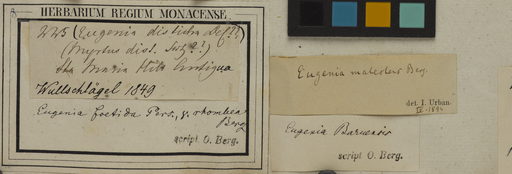 HERBARIUM REGIUM MONACENSE.
225 (Eugenia disticha
(Myrtus dist.
Maria Antigua
Wullschlägel 1849
Eugenia foetida Pers., γ. rhombea
Berg
script. O. Berg.
Eugenia Berg.
det. I. Urban.
Eugenia
script. O. Berg.